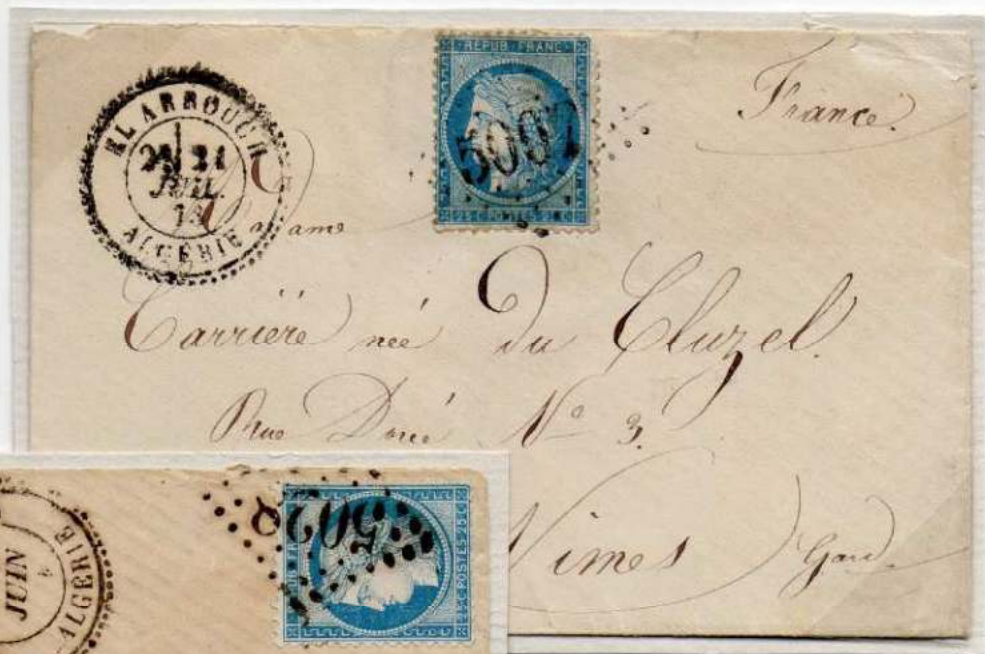 EL ARROUCH
21
JUIL.
73
ALGÉRIE
REPUB. FRANC.
5007
25 C POSTES 25 C
France
Madame
Carrière née Du Cluzel.
Rue Dorée Nº 3.
Nimes
Gard
JUIN
ALGÉRIE
502
POSTES 25 C